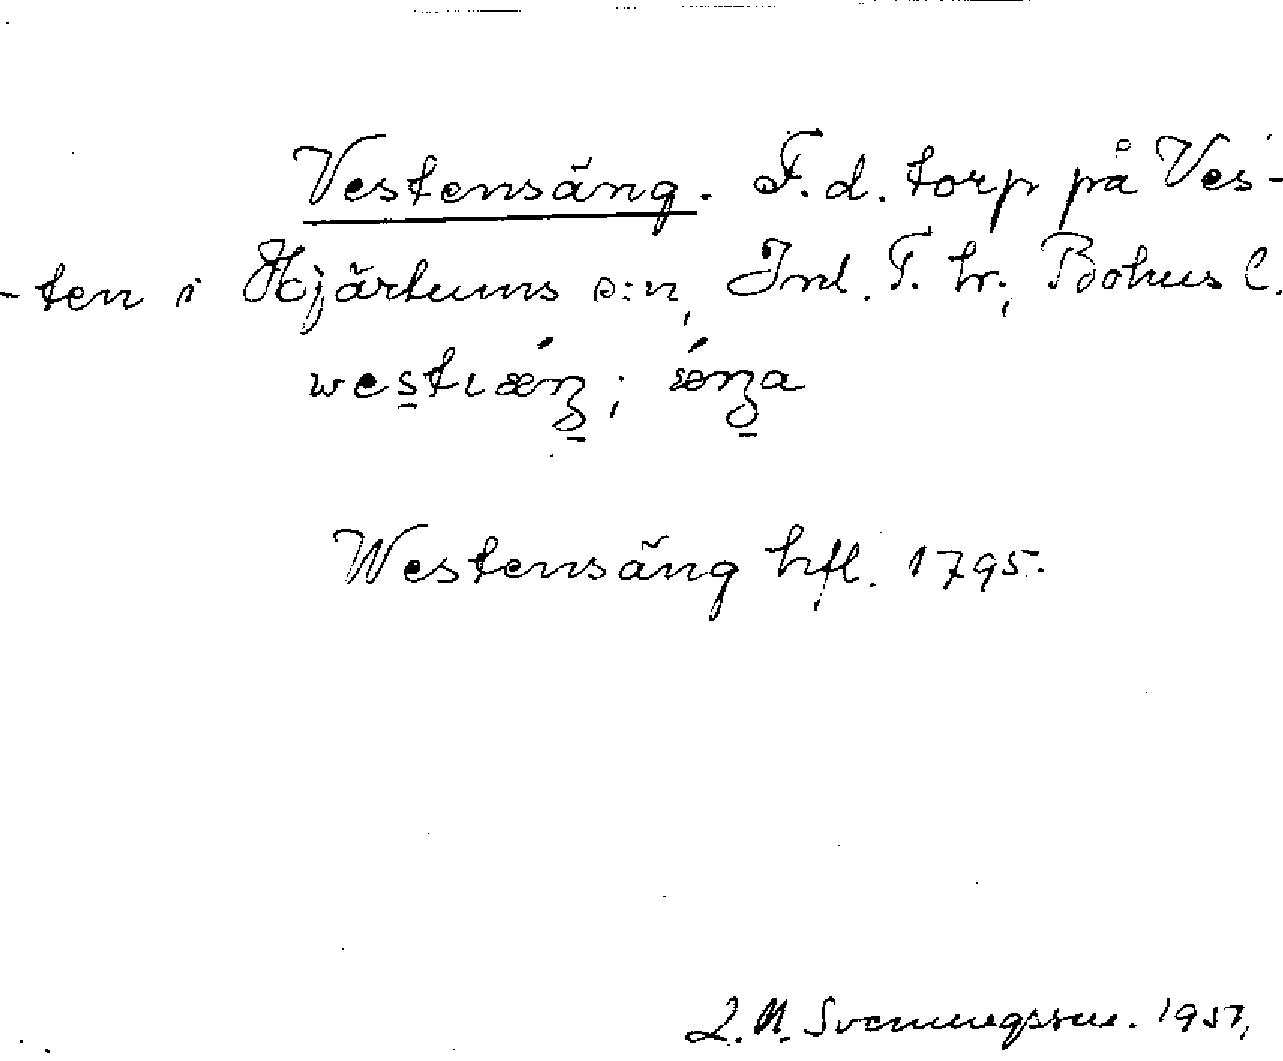 Vestensäng. F.d. torp på Ves-
-ten i Hjärtums s:n, Inl. T. hr., Bohus l.
Westensäng hfl. 1795.
Svenningsson. 1957.